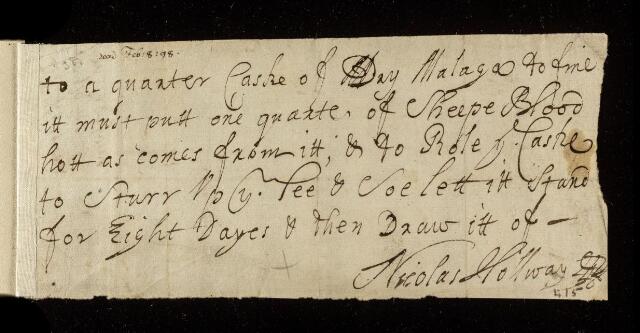 read Feb: 8: 98.
to a quarter Caske of Dry Malaga to fine
itt must putt one quarte, of Sheepe Blood
hott as comes from itt, & to Role y. Caske
to Sturr Vp y. Lee & Soe lett itt Stand
for Eight Dayes & then Draw itt of —
Nicolas Hollway